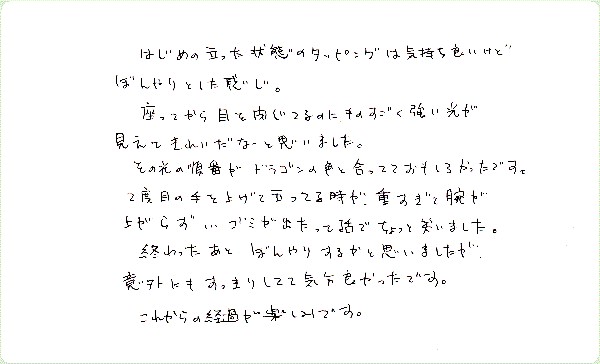 はじめの立った状態のタッピングは気持ち良いけど
ぼんやりとした感じ。
座ってから目を閉じてるのに、ものすごく強い光が
見えてきれいだなーと思いました。
その光の順番が ドラゴンの色と合ってておもしろかったです。
2度目の手を上げて立ってる時が、重すぎて腕が
上がらず、ゴミが出たって話でちょっと笑いました。
終わったあと ぼんやりするかと思いましたが、
意外にもすっきりしてて気分良かったです。
これからの経過が楽しみです。